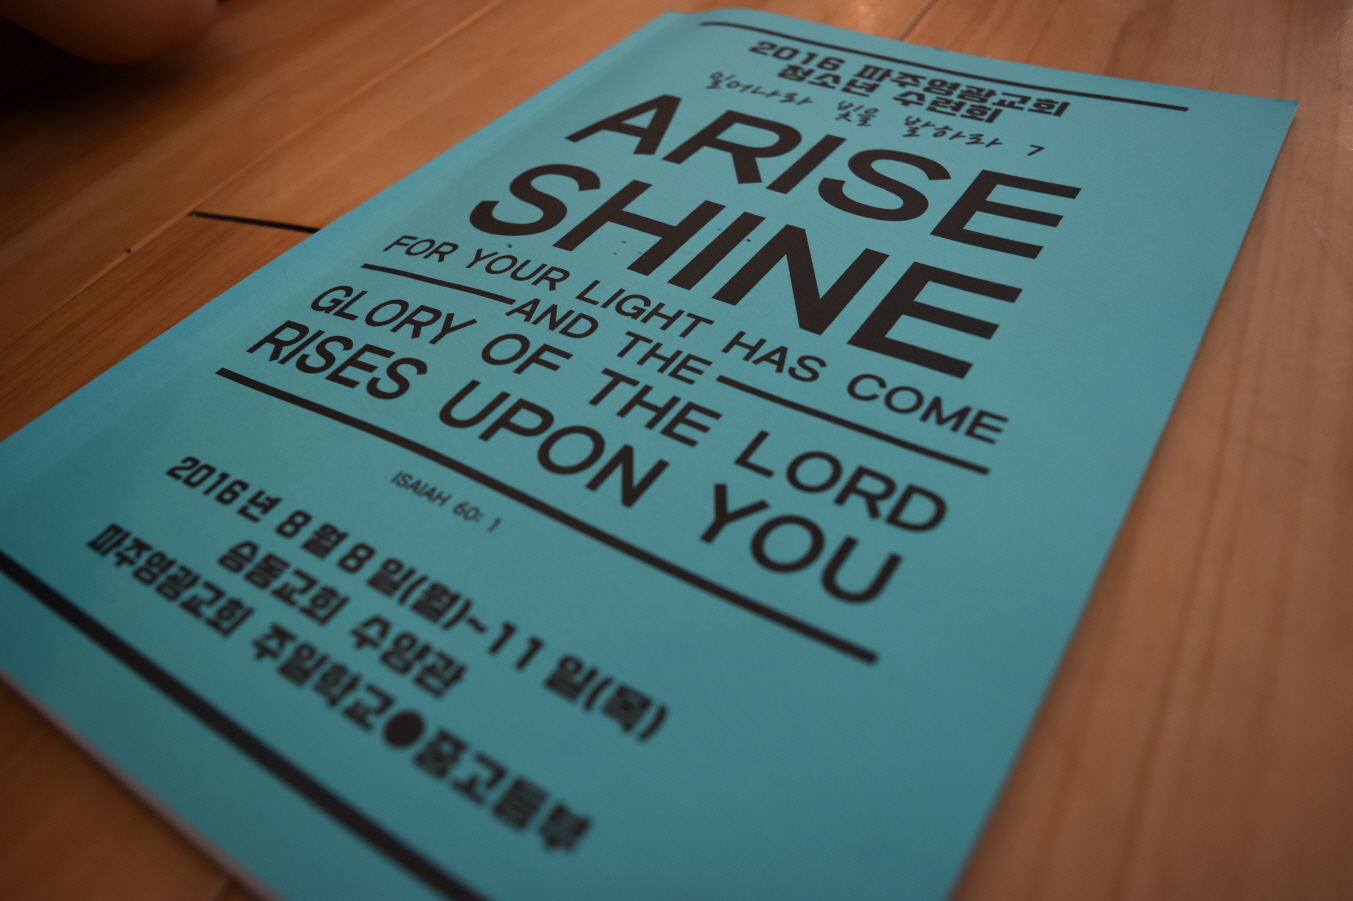 2016 파주영광교회
청소년 수련회
일어나라 빛을 발하라 7
ARISE
SHINE
FOR YOUR LIGHT HAS COME
AND THE
GLORY OF THE LORD
RISES UPON YOU
ISAIAH 60: 1
2016년 8월 8일(월)~11일(목)
승동교회 수양관
파주영광교회 주일학교●중고등부